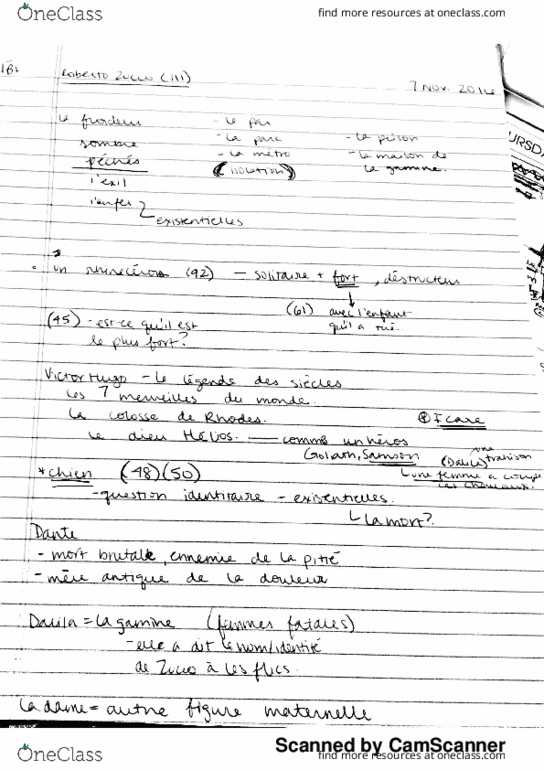 OneClass
find more resources at oneclass.com
Roberto Zucco (III)
7 Nov. 2016
le
- le
sombre
- le parc
- la prison
péchés
- la métro
- la maison de
l'exil
(isolation)
la gamine.
l'enfer
existentielles
URSDA
un rhinocéros (92) — solitaire + fort, destructeur
(61) avec l'enfant
qu'il a tué.
(45) - est-ce qu'il est
le plus fort?
Victor Hugo - le légende des siècles
les 7 merveilles du monde.
la colosse de Rhodes.
Icare
le dieu Hélios. — comme un héros
Goliath, Samson
(Dalila) une trahison
une femme a coupé
les cheveux.
* chien (48)(50)
- question identitaire - existentielles.
la mort?
Dante
- mort brutale, ennemie de la pitié
- mère antique de la douleur
Dalila = la gamine (femmes fatales)
- elle a dit le nom/identité
de Zucco à les flics.
La dame = autre figure maternelle
Scanned by CamScanner
OneClass
find more resources at oneclass.com